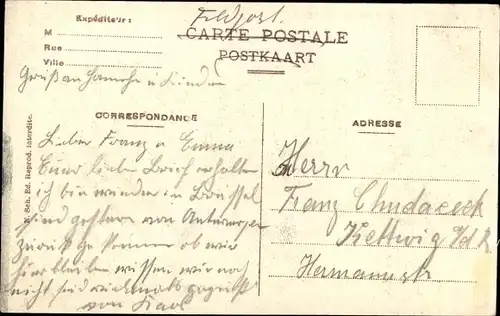 Expéditeur :
Feldpost.
CARTE POSTALE
POSTKAART
M
Rue
Ville
Gruß an u Kinder
CORRESPONDANCE
ADRESSE
Lieber Franz u Emma
Euer lieben Brief erhalten
ich bin wieder in Brüssel
sind gestern von Antwerpen
zurück ob wir
hier bleiben wissen wir noch
nicht seid vielmals gegrüßt
von Karl
Herrn
Franz Chudaceck
Kettwig a/d R
Hermannstr
Ed. Reprod. interdite.